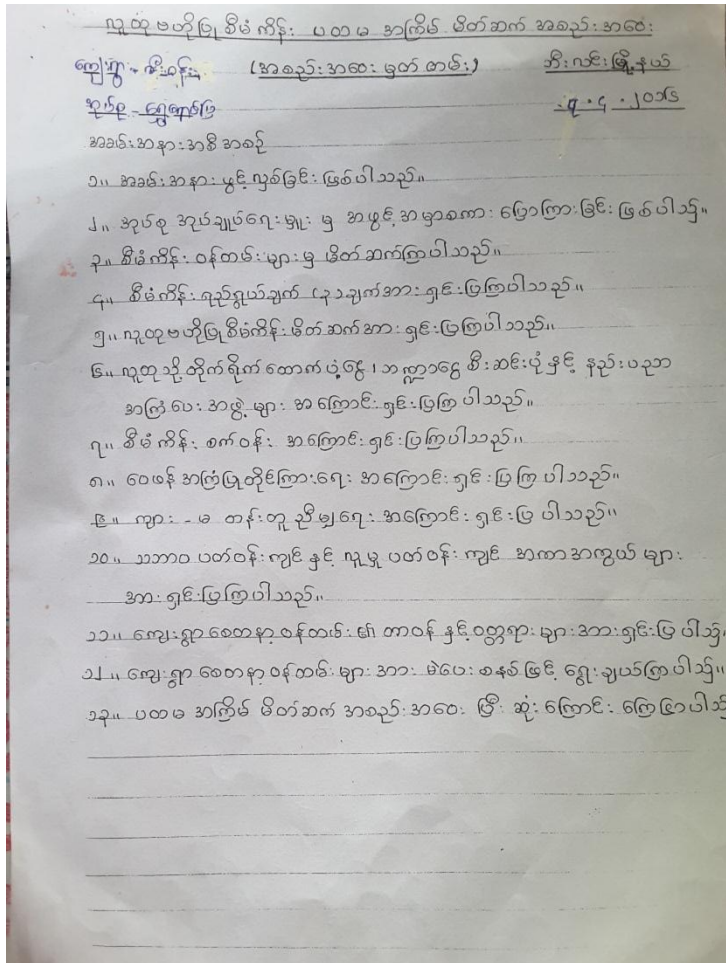 လူထုဗဟိုပြုစီမံကိန်း ပထမ အကြိမ် မိတ်ဆက် အစည်းအဝေး
ကျေးရွာ - (အစည်းအဝေး မှတ်တမ်း) ဘီးလင်းမြို့နယ်
အုပ်စု - .၇.၄.၂၀၁၆
အခမ်းအနားအစီအစဉ်
၁။ အခမ်းအနား ဖွင့်လှစ်ခြင်း ဖြစ်ပါသည်။
၂။ အုပ်စု အုပ်ချုပ်ရေးမှူး မှ အဖွင့်အမှာစကား ပြောကြားခြင်း ဖြစ်ပါသည်။
၃။ စီမံကိန်း ဝန်ထမ်းများမှ မိတ်ဆက်ကြပါသည်။
၄။ စီမံကိန်း ရည်ရွယ်ချက် (၃)ချက်အား ရှင်းပြကြပါသည်။
၅။ လူထုဗဟိုပြုစီမံကိန်းမိတ်ဆက်အား ရှင်းပြကြပါသည်။
၆။ လူထုသို့တိုက်ရိုက်ထောက်ပံ့ငွေ၊ ဘဏ္ဍာငွေ စီးဆင်းပုံ နှင့် နည်းပညာ
အကြံပေးအဖွဲ့များ အကြောင်းရှင်းပြကြပါသည်။
၇။ စီမံကိန်း စက်ဝန်း အကြောင်းရှင်းပြကြပါသည်။
၈။ ဝေဖန်အကြံပြုတိုင်ကြားရေး အကြောင်း ရှင်းပြကြပါသည်။
၉။ ကျား - မ တန်းတူညီမျှရေး အကြောင်း ရှင်းပြပါသည်။
၁၀။ သဘာဝ ပတ်ဝန်းကျင် နှင့် လူမှု ပတ်ဝန်းကျင် အကာအကွယ်များ
အား ရှင်းပြကြပါသည်။
၁၁။ ကျေးရွာစေတနာ့ဝန်ထမ်း၏ တာဝန် နှင့်ဝတ္တရားများအားရှင်းပြပါသည်။
၁၂။ ကျေးရွာစေတနာ့ဝန်ထမ်းများအား မဲပေးစနစ်ဖြင့် ရွေးချယ်ကြပါသည်။
၁၃။ ပထမ အကြိမ် မိတ်ဆက် အစည်းအဝေး ပြီးဆုံးကြောင်း ကြေငြာပါ